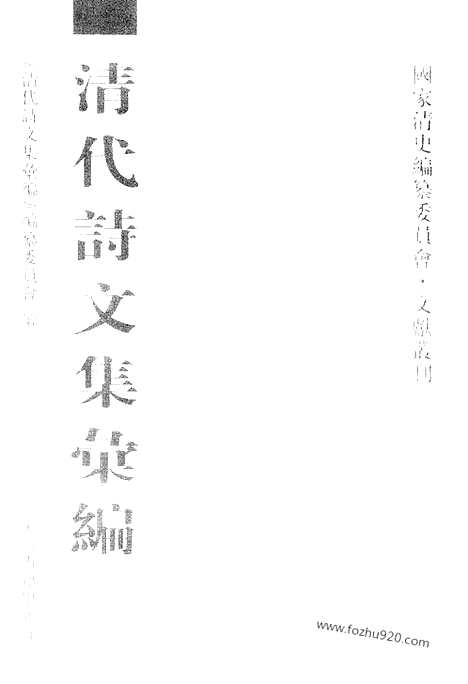 國家清史編纂委員會·文獻叢刊
清代詩文集彙編
清代詩文集彙編編纂委員會 編
www.fozhu920.com